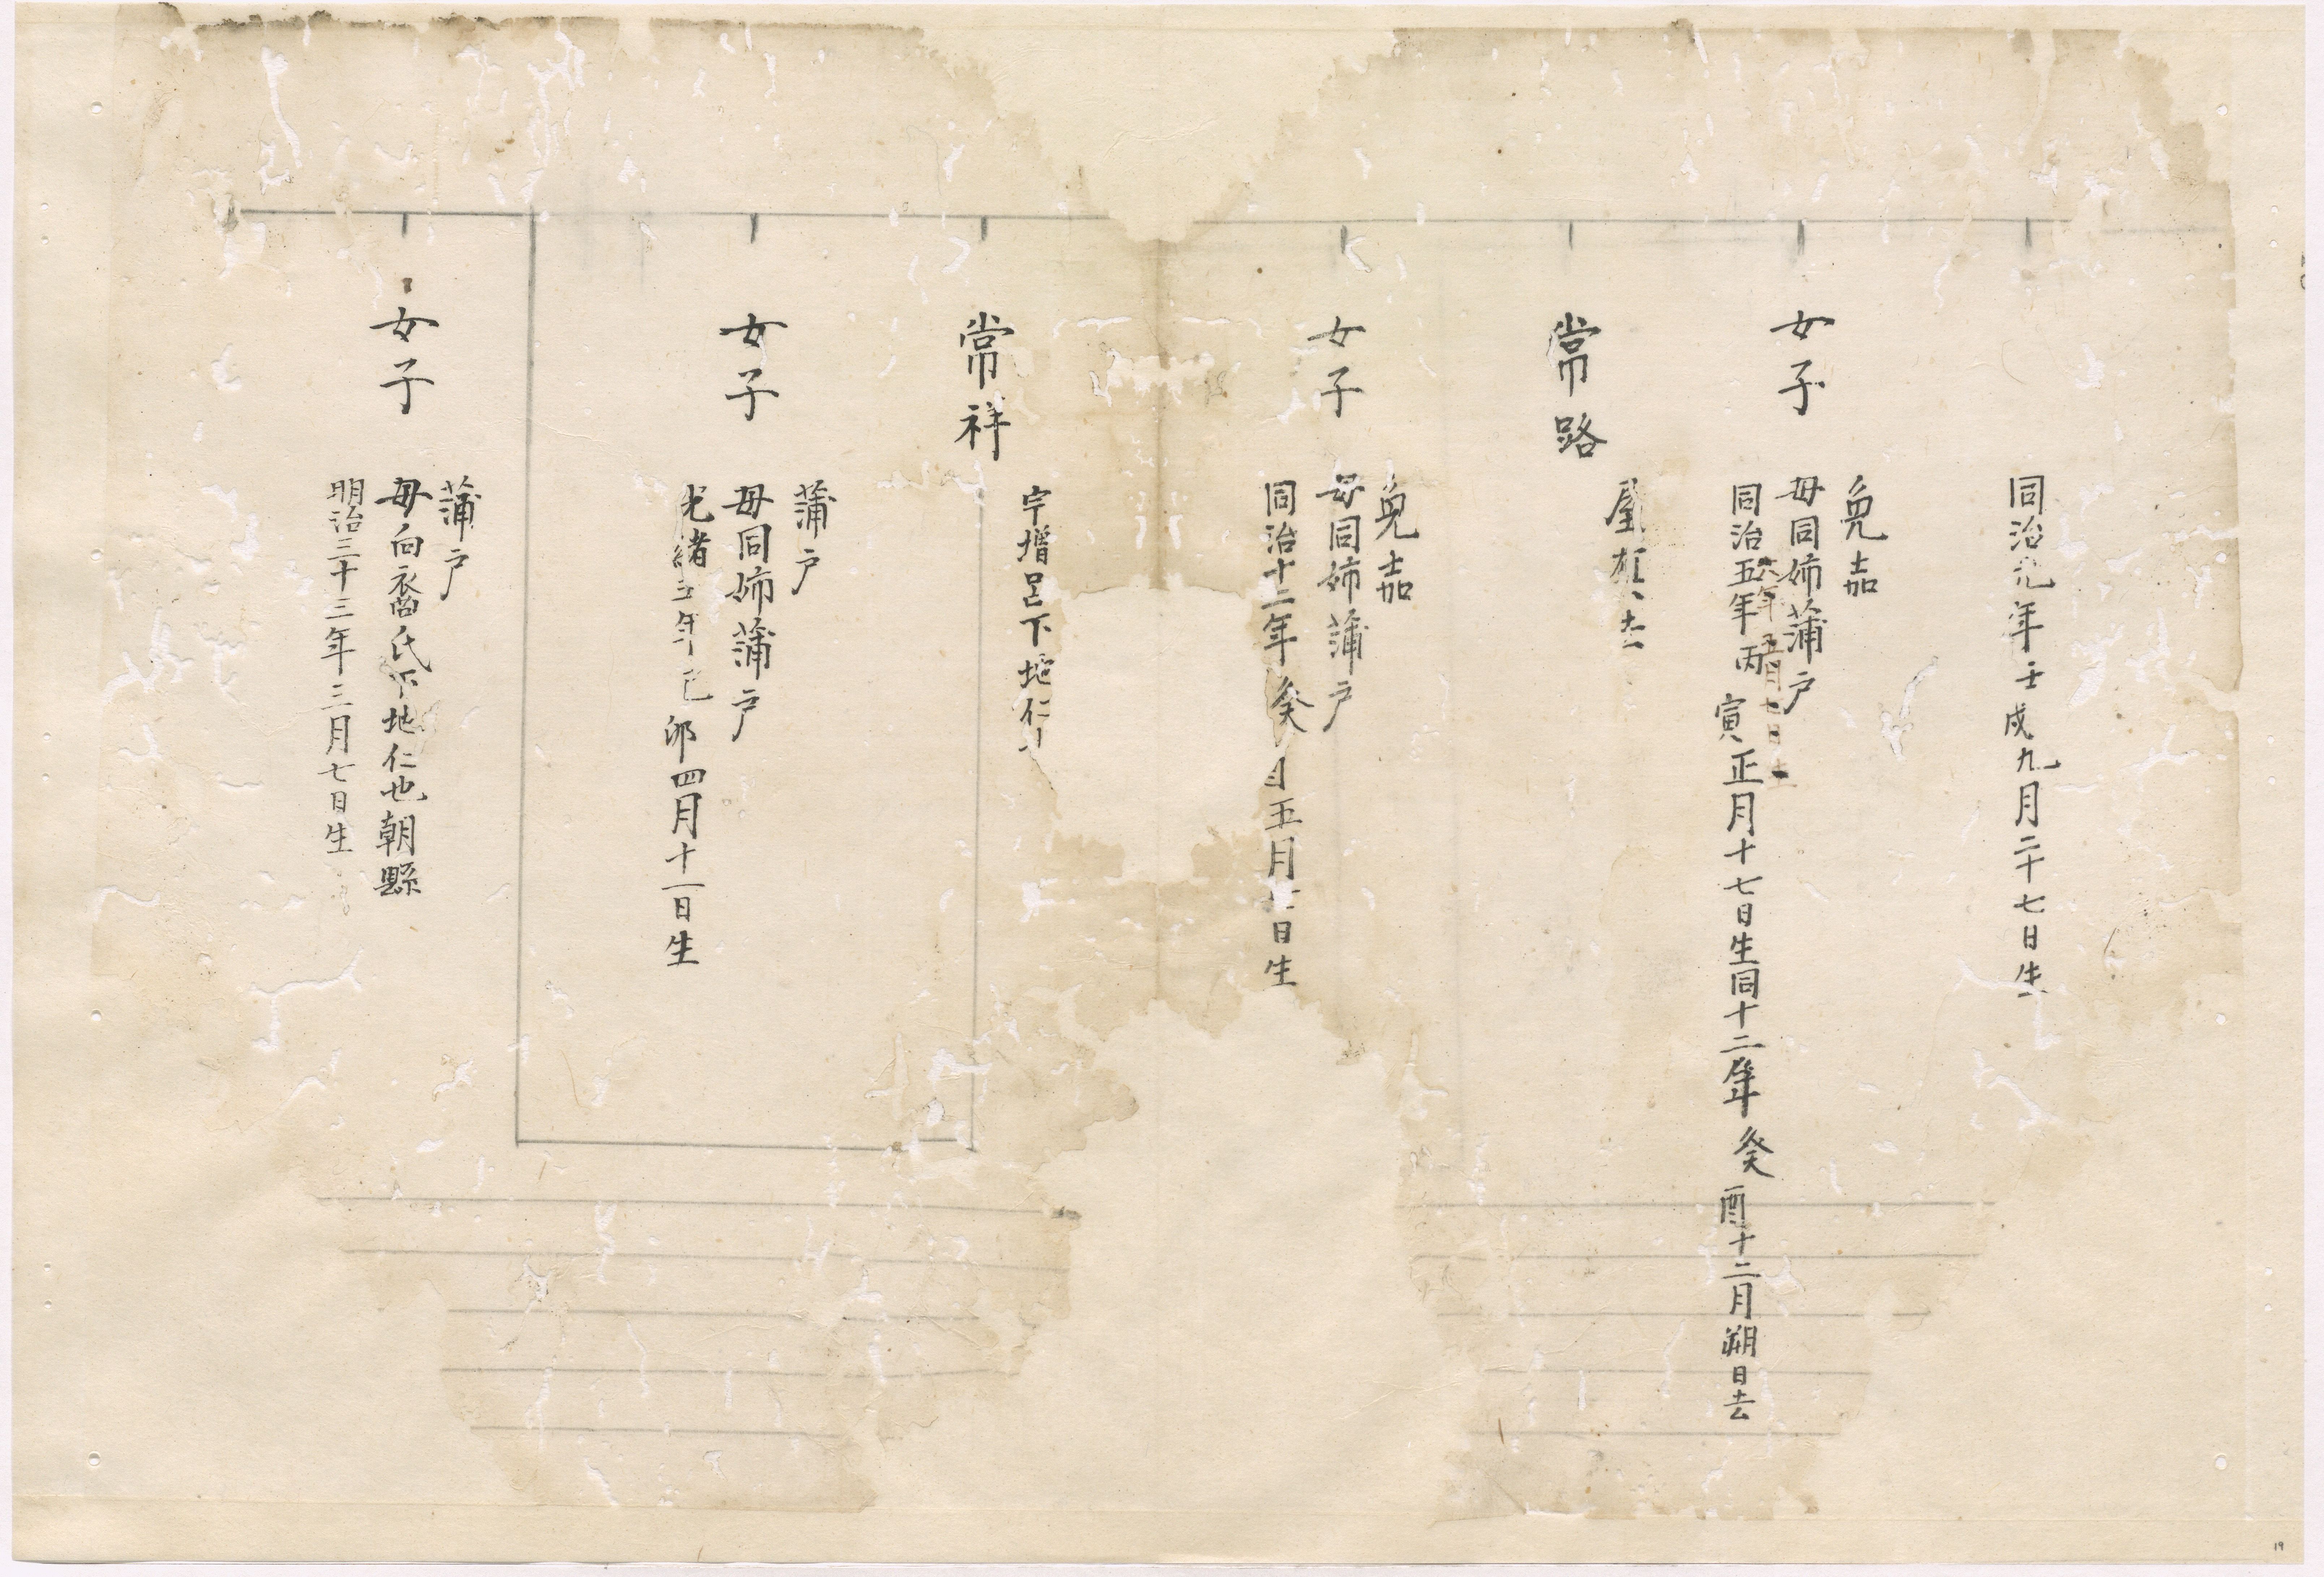 同治元年壬戌九月二十七日生
女子
免嘉
母同姉蒲戸
同治五年丙寅正月十七日生同十二年癸酉十二月朔日去
常路
屋
去
女子
免嘉
母同姉蒲戸
同治十二年癸酉五月廿日生
常祥
宇增呂下地仁
女子
蒲戸
母同姉蒲戸
光緒五年己卯四月十一日生
女子
蒲戸
母向裔氏下地仁也朝縣
明治三十三年三月七日生
19